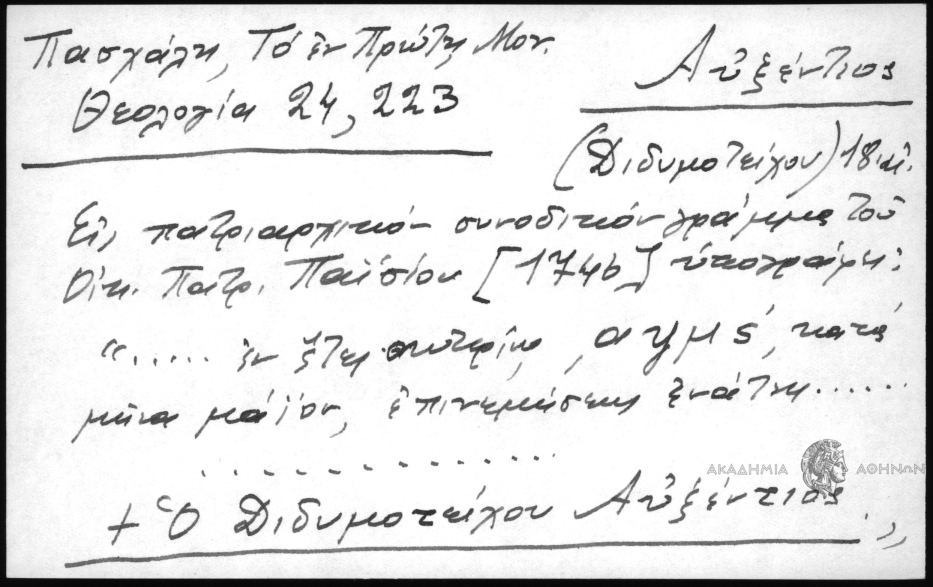 Πασχάλη, Τό ἐν Πρώτῃ Μον.
Θεολογία 24, 223
Αὐξέντιος
(Διδυμοτείχου) 18 αἰ.
Εἰς πατριαρχικόν συνοδικόν γράμμα τοῦ
Οἰκ. Πατρ. Παϊσίου [1746] ὑπογράφει:
“..... ἐν ἔτει σωτηρίῳ, αψμϛ́, κατά
μῆνα μάϊον, ἐπινεμήσεως ἐνάτης......
ΑΚΑΔΗΜΙΑ ΑΘΗΝΩΝ
+ Ὁ Διδυμοτείχου Αὐξέντιος.,,